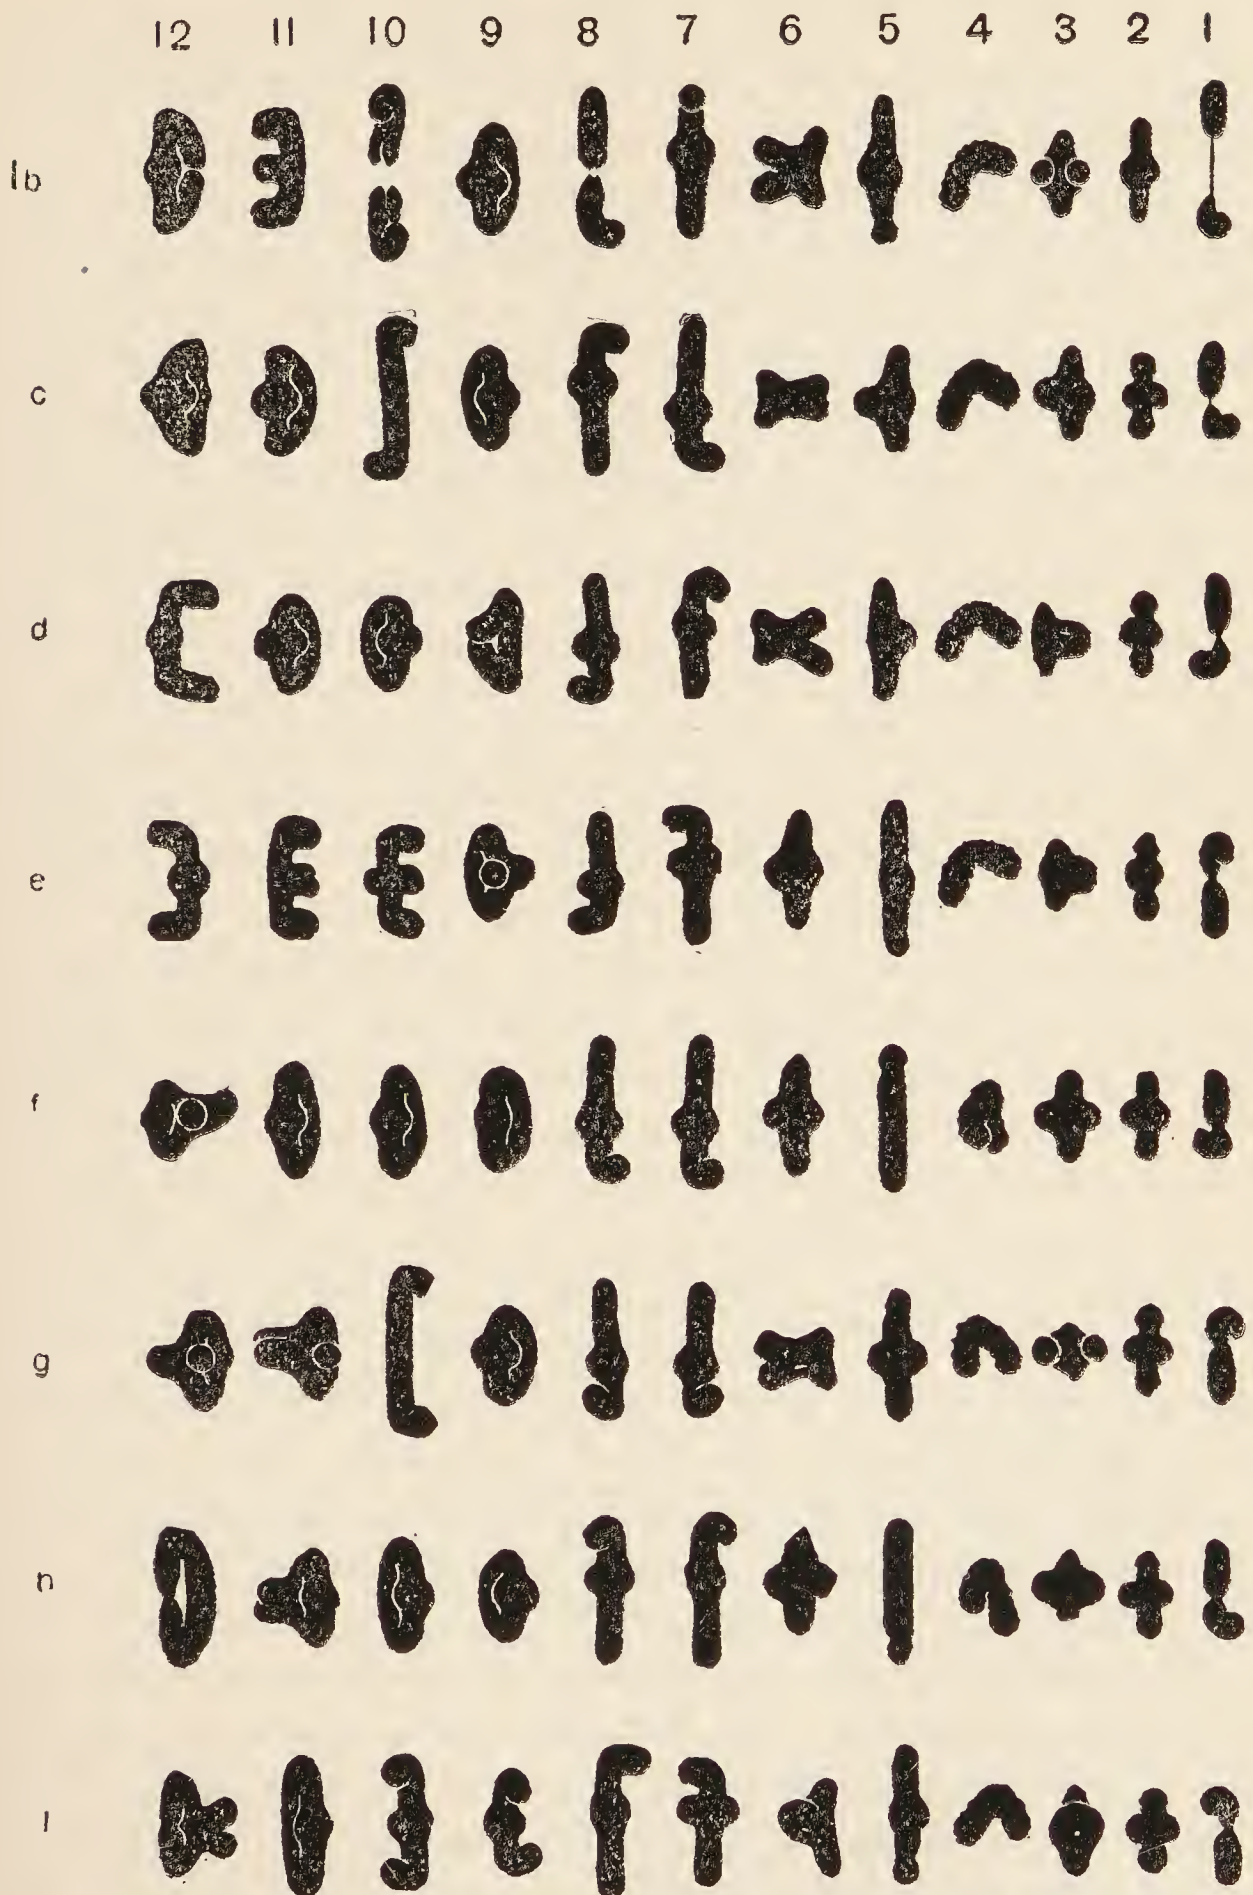 12 11 10 9 8 7 6 5 4 3 2 1
1b
c
d
e
f
g
n
l